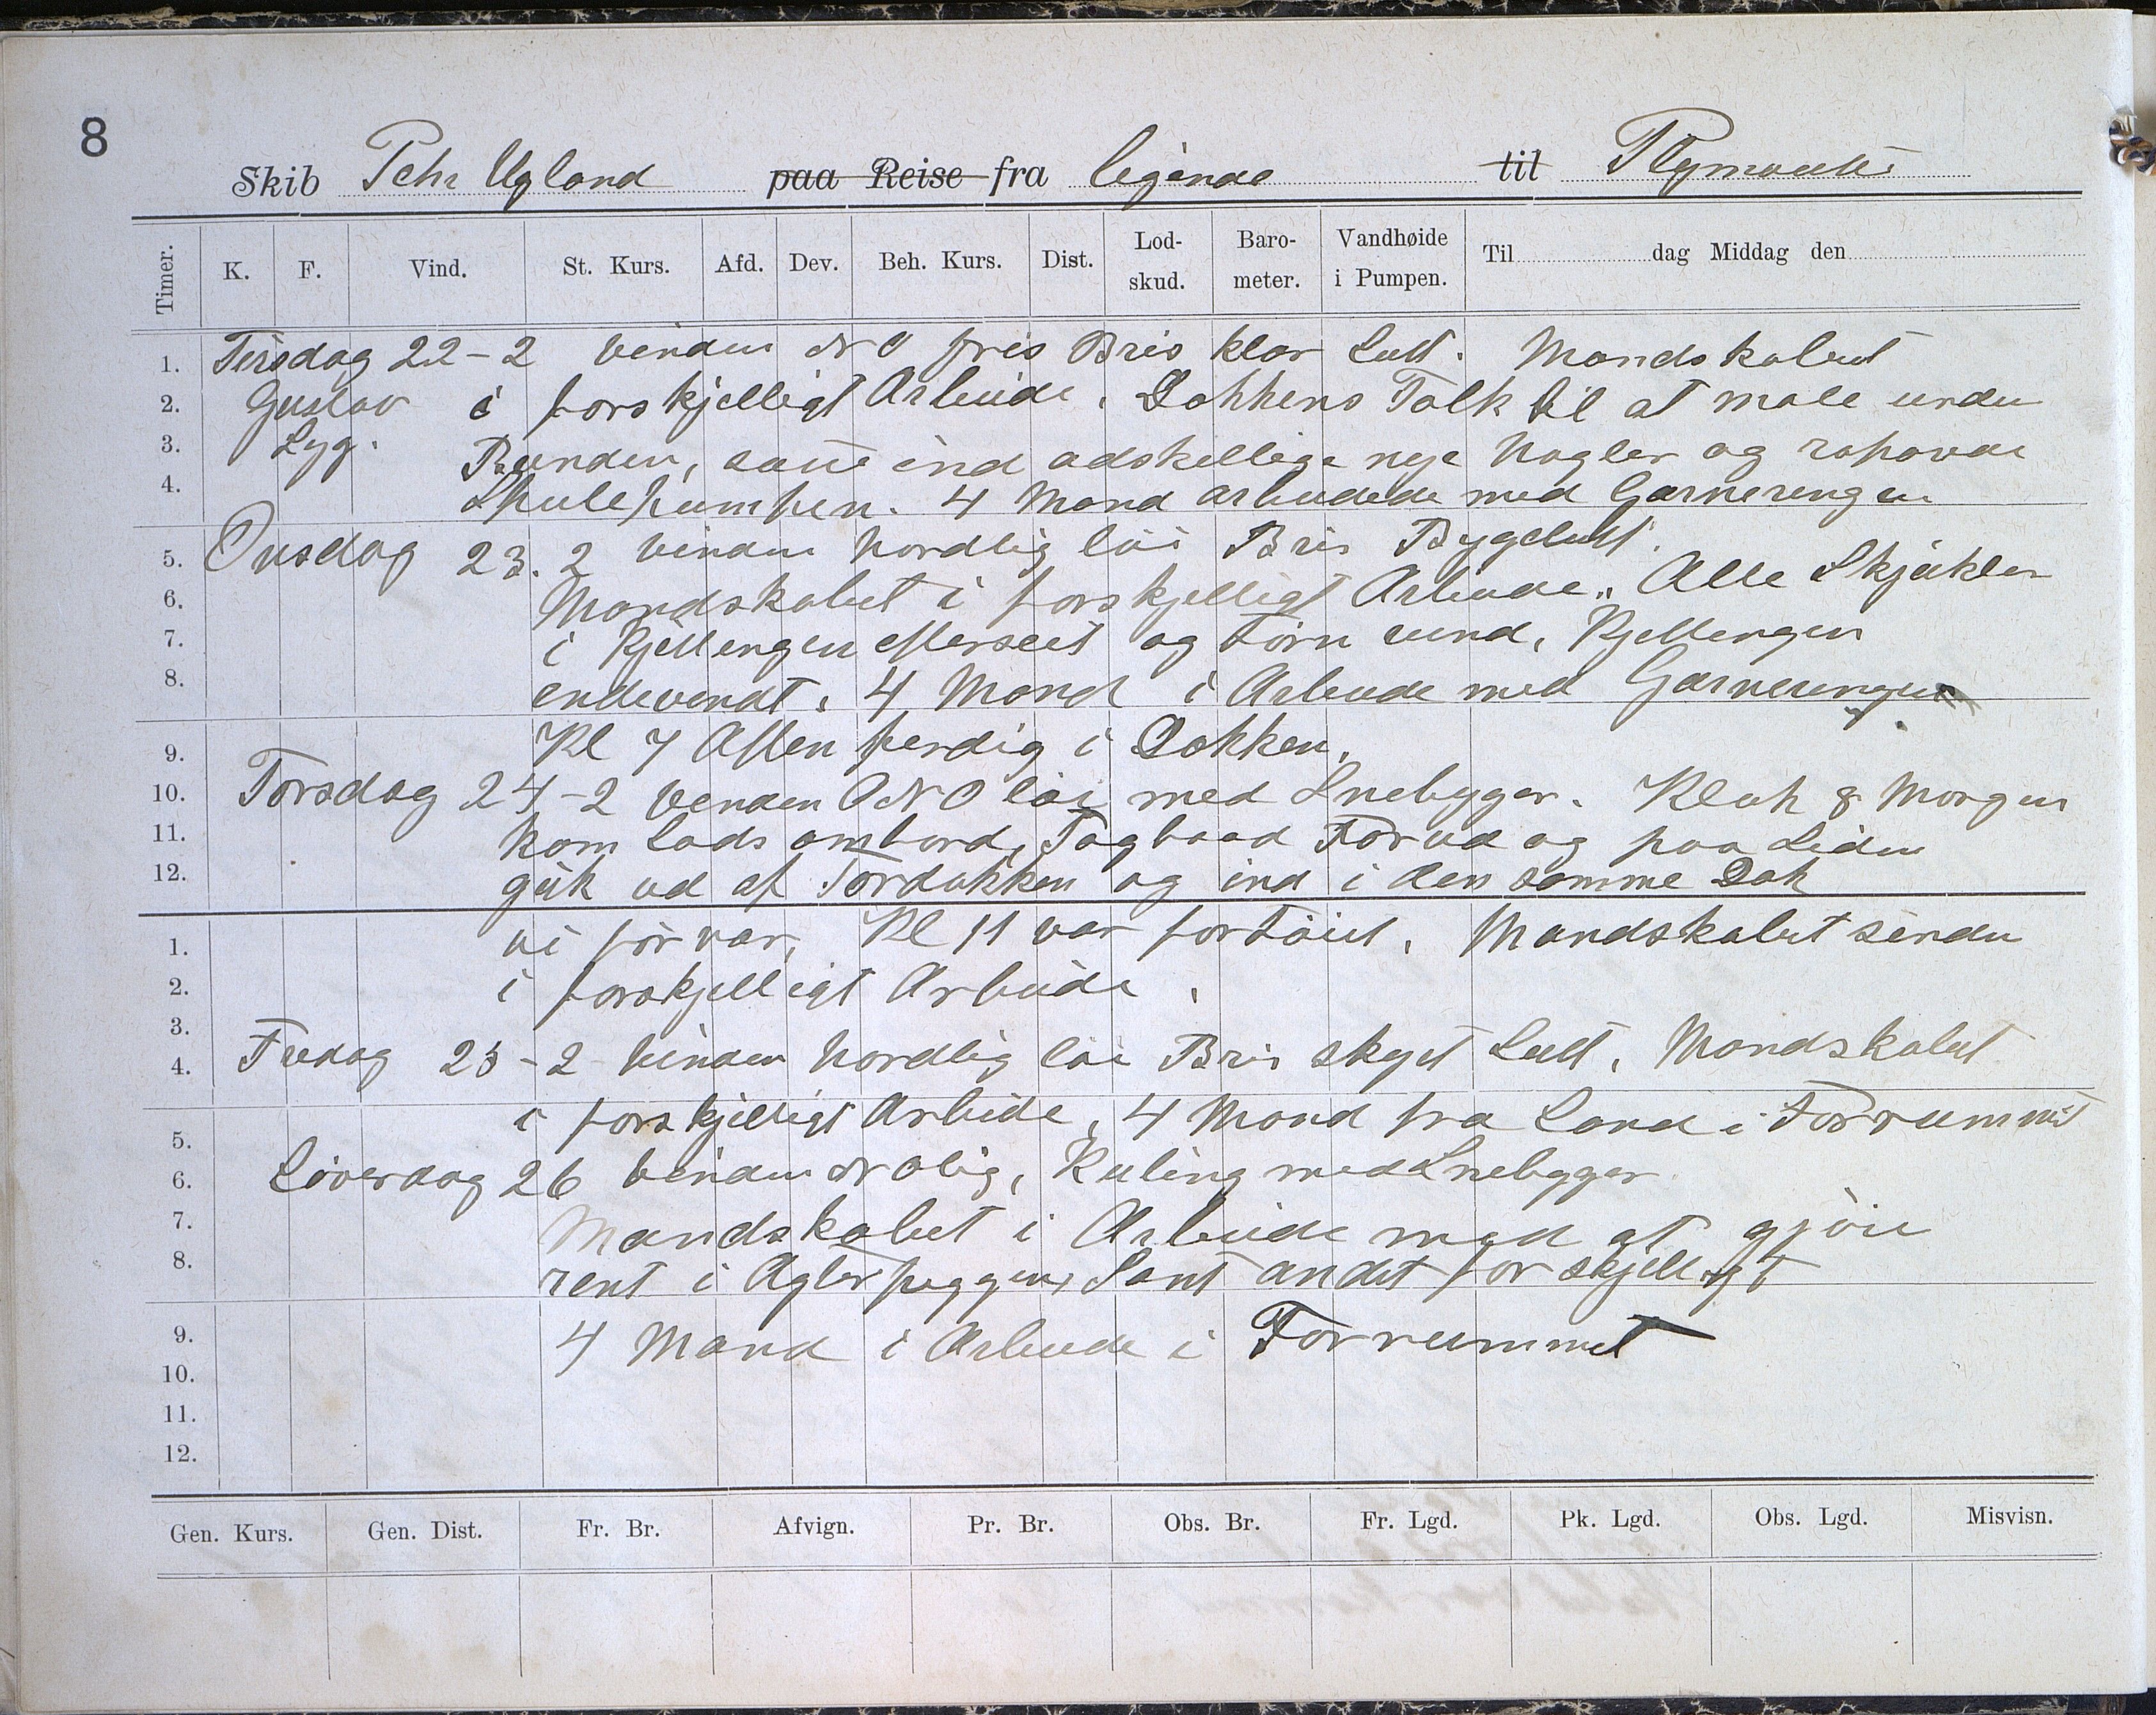 8
Skib Pehr Ugland paa Reise fra ligende til Plymouth
Timer. K. F. Vind. St. Kurs. Afd. Dev. Beh. Kurs. Dist. Lod-skud. Baro-meter. Vandhøide i Pumpen. Til dag Middag den
1. Tirsdag 22-2 vinden NO fris Bris klar Luft. Mandskabet
2. Gustav i forskjelligt Arbeide. Dokkens Folk til at male under
3. Syg. Bunden, satte ind adskellige nye Nagler og
4. Spulepumpen. 4 Mand arbeidede med Garneringen
5. Onsdag 23.2 vinden Nordlig löi Bris Bygeluft.
6. Mandskabet i forskjelligt Arbeide. Alle Skjækler
7. i Kjettingen efterseet og törn rund, Kjettingen
8. endevendt. 4 Mand i Arbeide med Garneringen
9. Kl 7 Aften ferdig i Dokken.
10. Torsdag 24-2 vinden ONO löi med Snebyger. Klok 8 Morgen
11. kom Lods ombord, Tagbaad Forud og paa Siden
12. gik ud af Tördokken og ind i den samme Dok
1. vi för var, Kl 11 var fortöiet. Mandskabet siden
2. i forskjelligt Arbeide.
3.
4. Fredag 25-2 vinden Nordlig löi Bris skyet Luft. Mandskabet
5. i forskjelligt Arbeide, 4 Mand fra Land i Forrummet
6. Löverdag 26 vinden NOlig, Kuling med Snebyger
7. Mandskabet i Arbeide med at gjöre
8. rent i Agterpeggen, Samt andet forskjelligt
9. 4 Mand i Arbeide i Forrummet
10.
11.
12.
Gen. Kurs. Gen. Dist. Fr. Br. Afvign. Pr. Br. Obs. Br. Fr. Lgd. Pk. Lgd. Obs. Lgd. Misvisn.